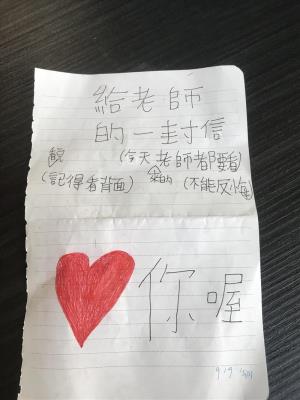 給老師
的一封信
(今天老師都要看)
(記得看背面) (不能反悔)
你喔
9/9